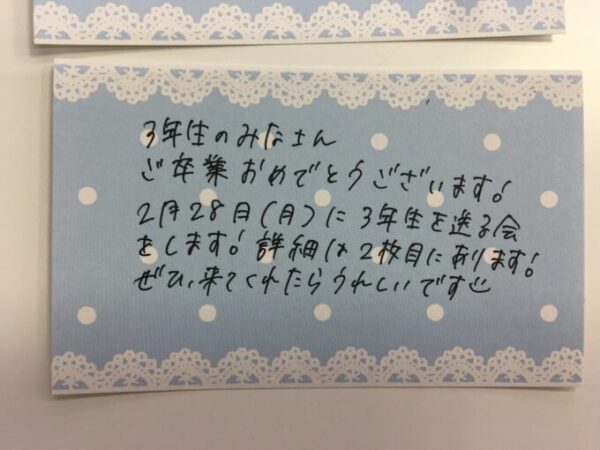 3年生のみなさん
ご卒業おめでとうございます!
2月28日(月)に3年生を送る会
をします!詳細は2枚目にあります!
ぜひ、来てくれたらうれしいです